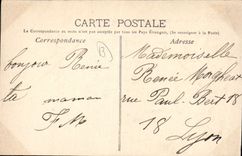 CARTE POSTALE
La Correspondance au recto n'est pas acceptée par tous les Pays Étrangers, (Se renseigner à la Poste)
Correspondance
Adresse
bonjour Renée
ta maman
F M
Mademoiselle
Renée
rue Paul Bert 18
18
Lyon